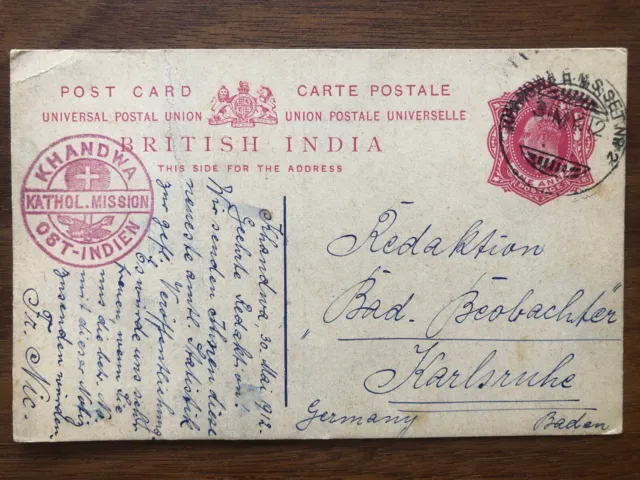 POST CARD CARTE POSTALE
UNIVERSAL POSTAL UNION UNION POSTALE UNIVERSELLE
BRITISH INDIA
THIS SIDE FOR THE ADDRESS
KHANDWA
KATHOL. MISSION
OST-INDIEN
R.M.S.
SET Nº 2
ONE ANNA
POSTAGE
Khandwa, 30. Mai 1912.
Geehrte Redaktion!
Wir senden Ihnen diese
neueste amtl. Statistik
zur gefl. Veröffentlichung.
Es würde uns sehr
freuen, wenn Sie
uns die betr. Nr.
mit dieser Notiz
zusenden würden.
Fr. Nic.
Redaktion
"Bad. Beobachter"
Karlsruhe
Germany Baden